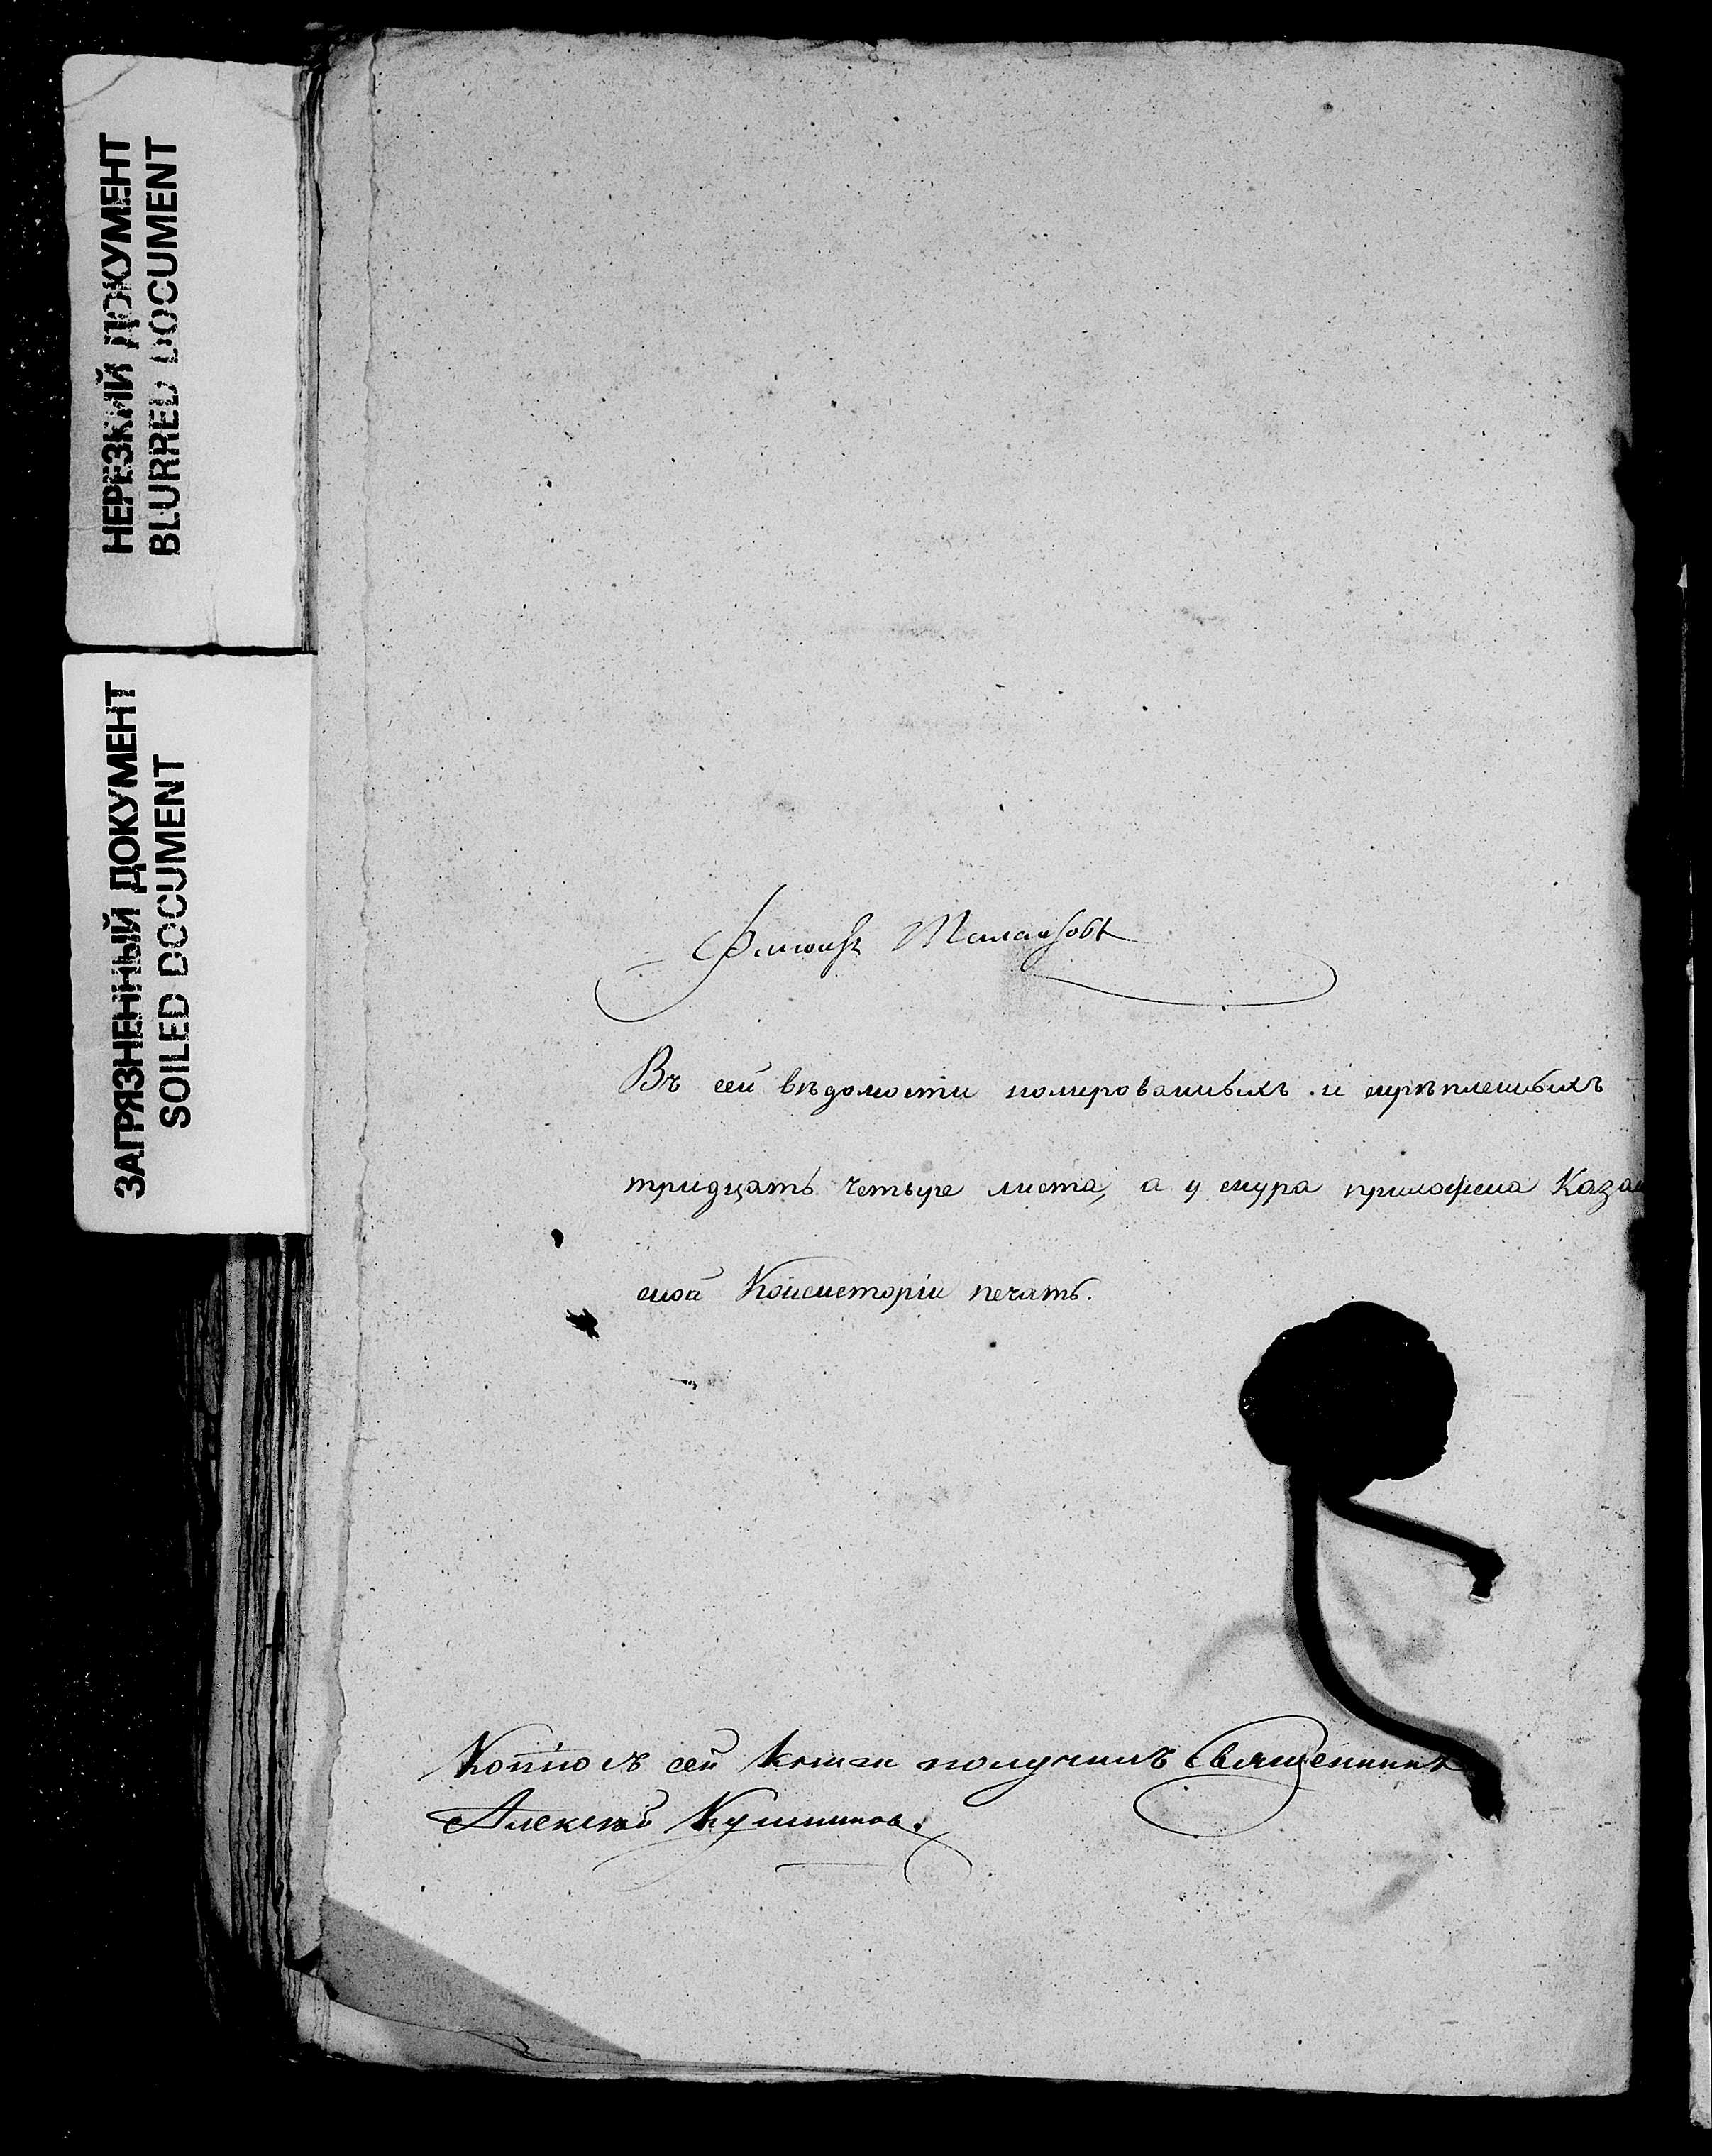 НЕРЕЗКИЙ ДОКУМЕНТ
BLURRED DOCUMENT
ЗАГРЯЗНЕННЫЙ ДОКУМЕНТ
SOILED DOCUMENT
Въ сей вѣдомости номерованныхъ и скрѣпленныхъ
тридцать четыре листа, а у снура приложена Казан
ской Консисторіи печать.
Копію съ сей книги получилъ Священникъ
Алексѣй